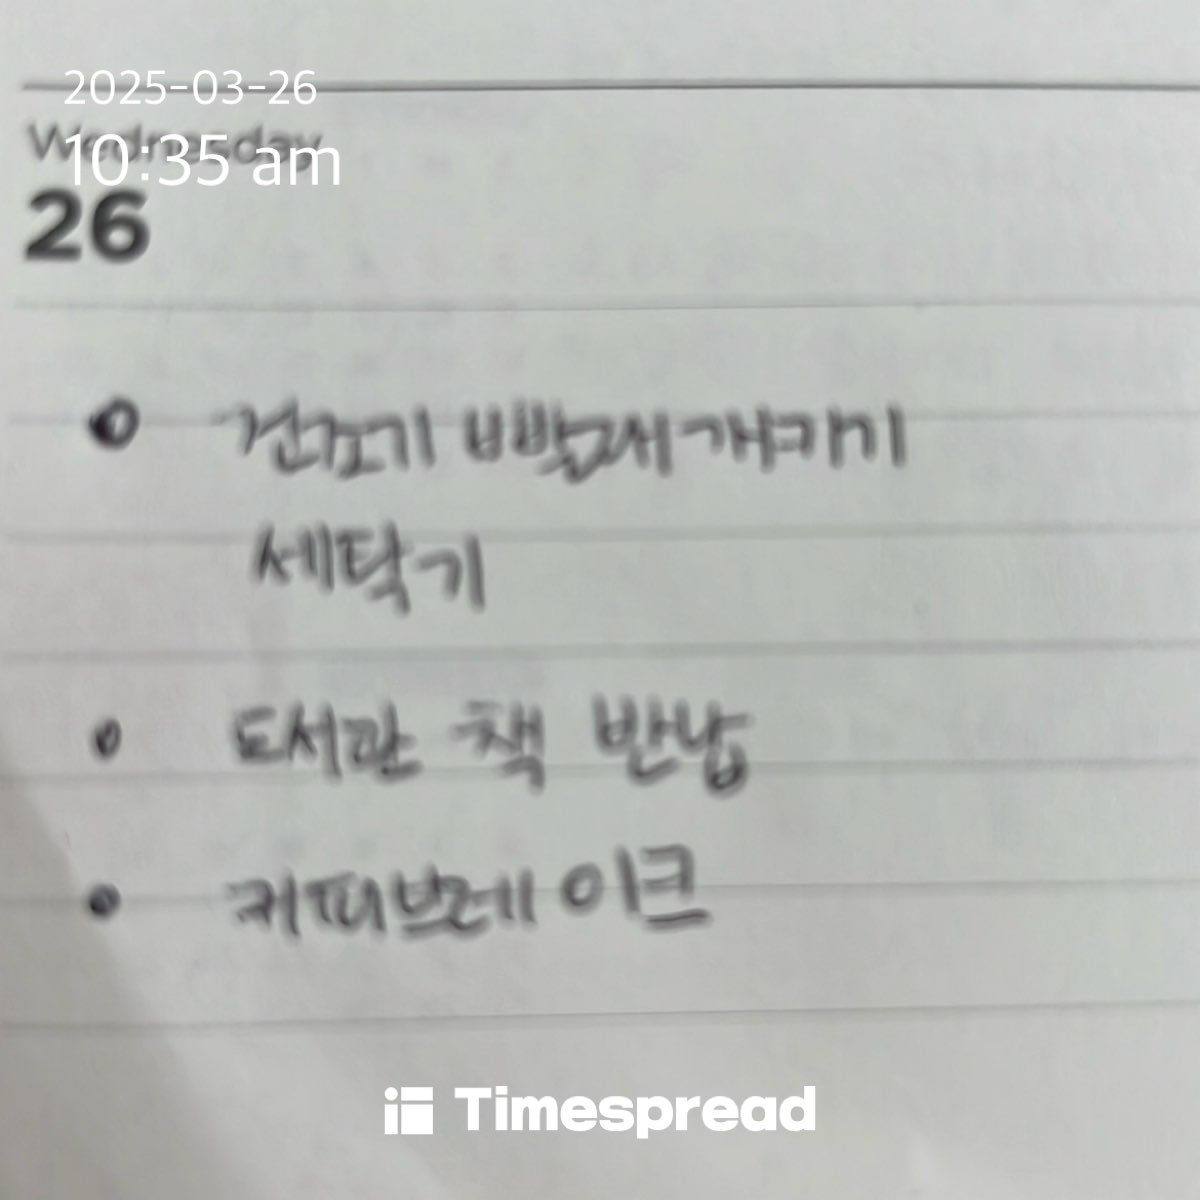 2025-03-26
Wednesday
10:35 am
26
건조기 빨래개기
세탁기
도서관 책 반납
커피브레이크
Timespread